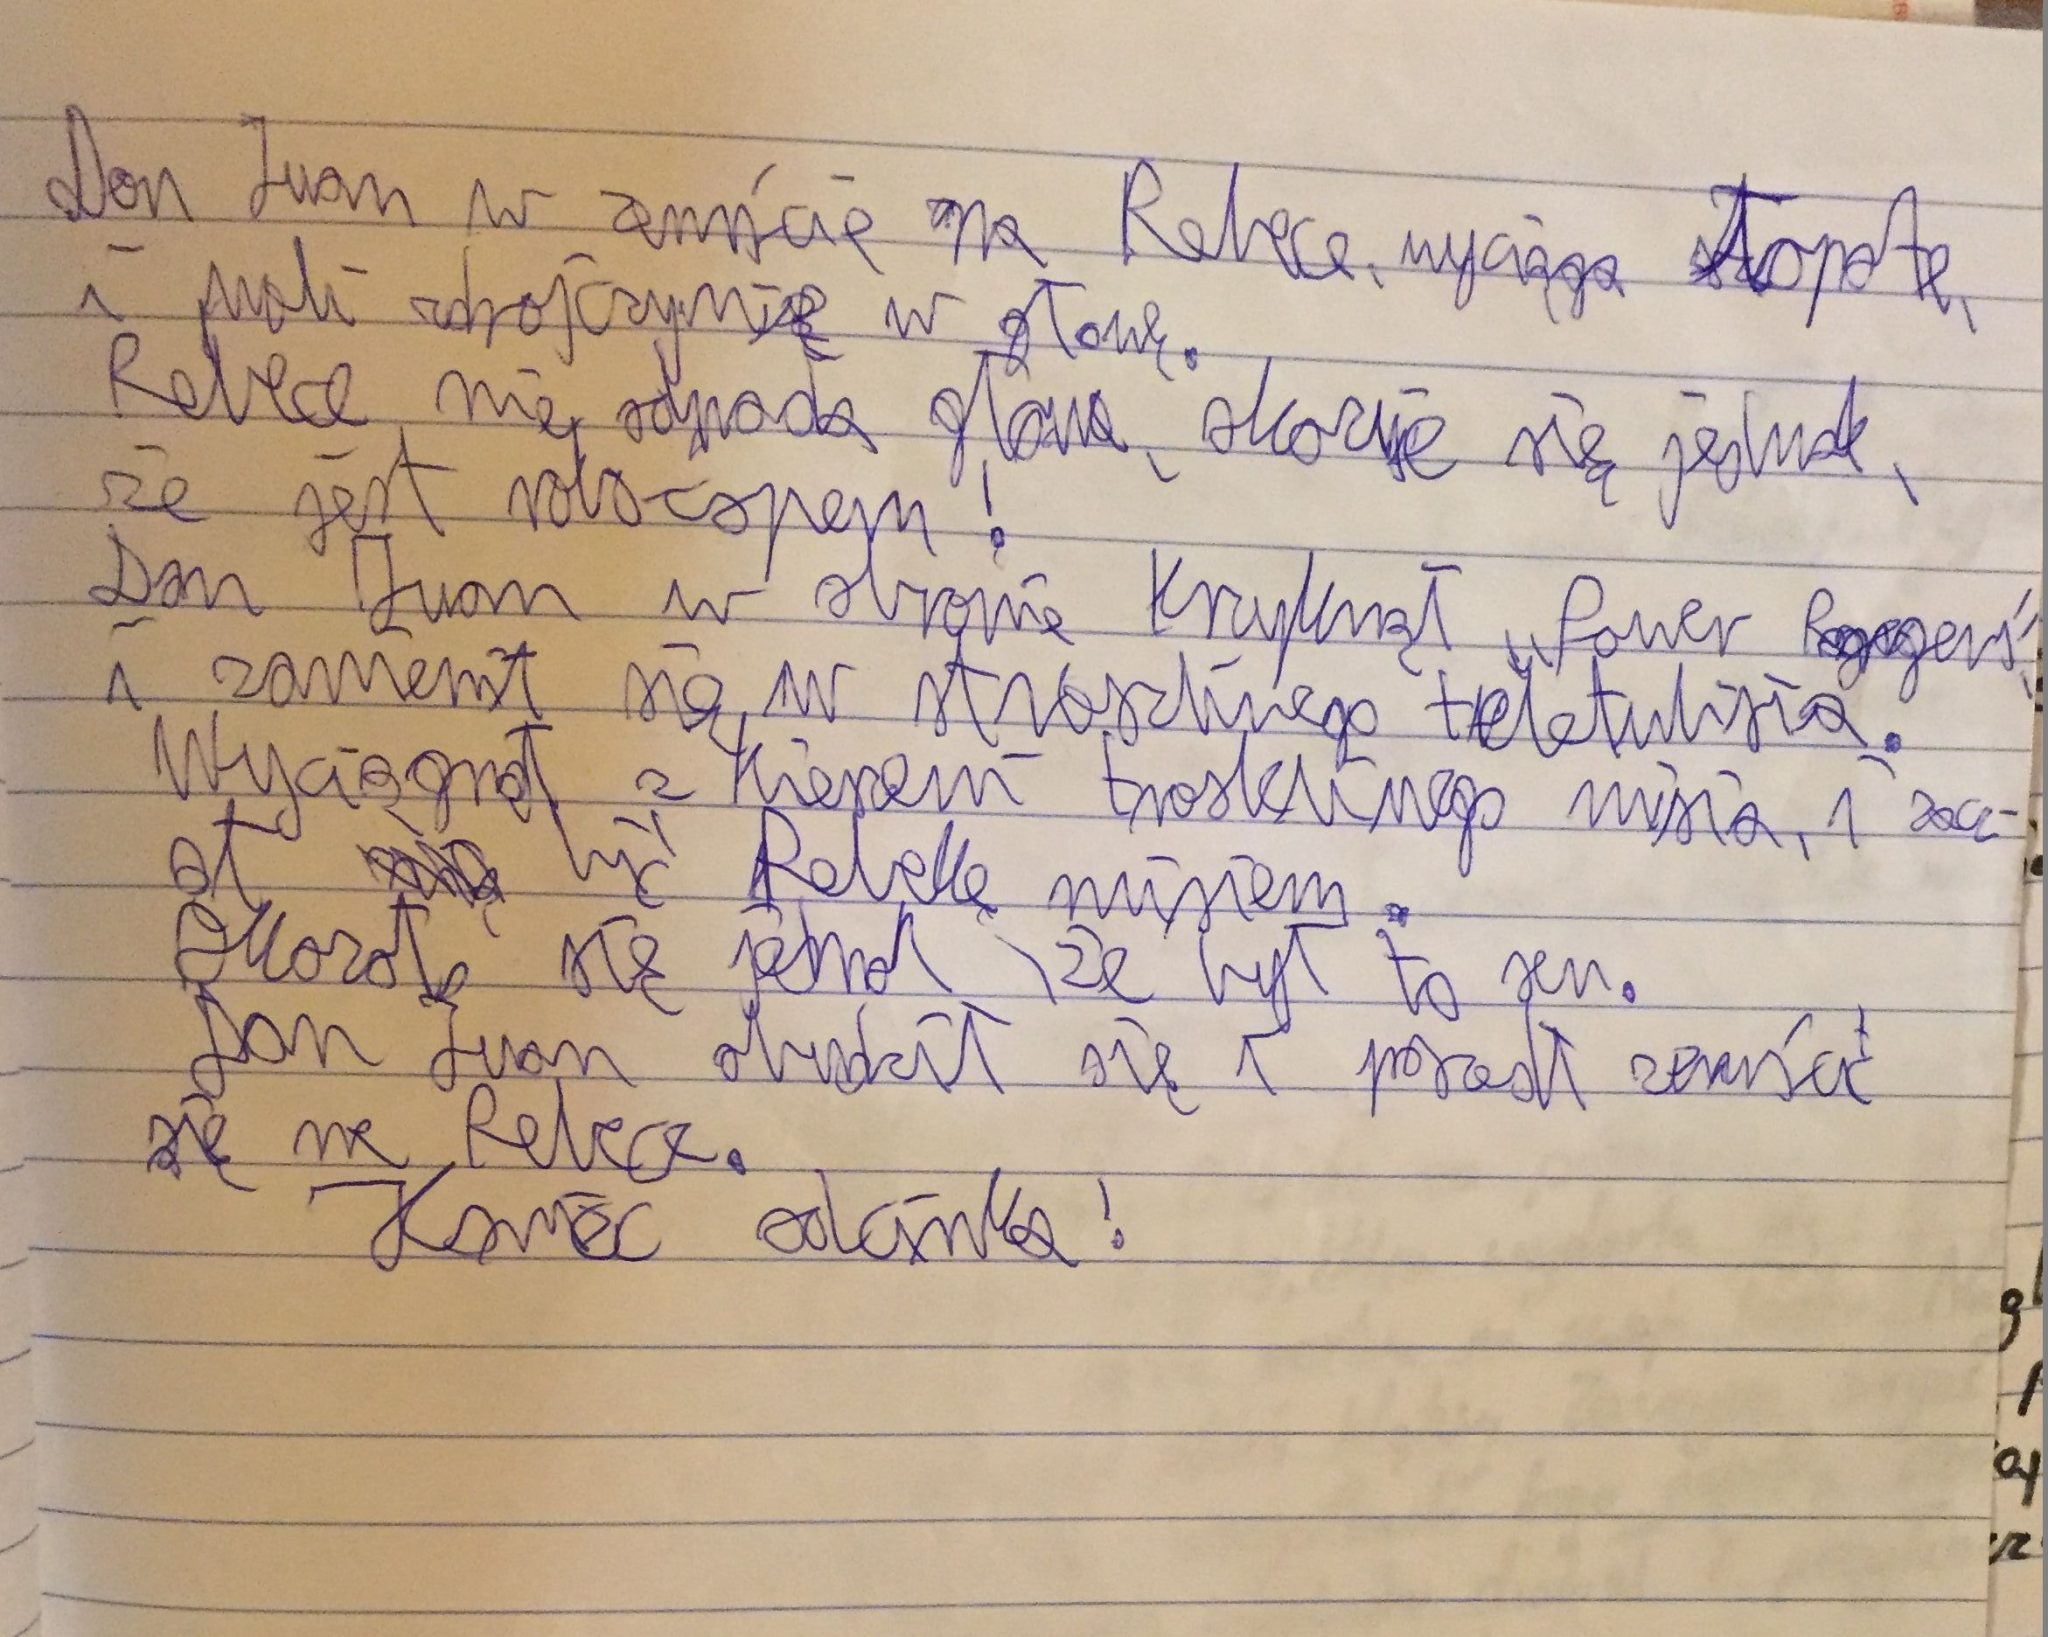 Don Juan w zemście na Rebece, wyciąga łopatę,
i wali zbrojczynię w głowę.
Rebece nie odpada głowa, okazuje się jednak,
że jest robo-copem!
Don Juan w obronie krzyknął „Power Rangers”,
i zamienił się w straszliwego teletubisia.
Wyciągnął z kieszeni troskliwego misia, i zacz-
ął bić Rebekę misiem.
Okazało się jednak, że był to sen.
Don Juan obudził się i poszedł zemścić
się na Rebece.
Koniec odcinka!